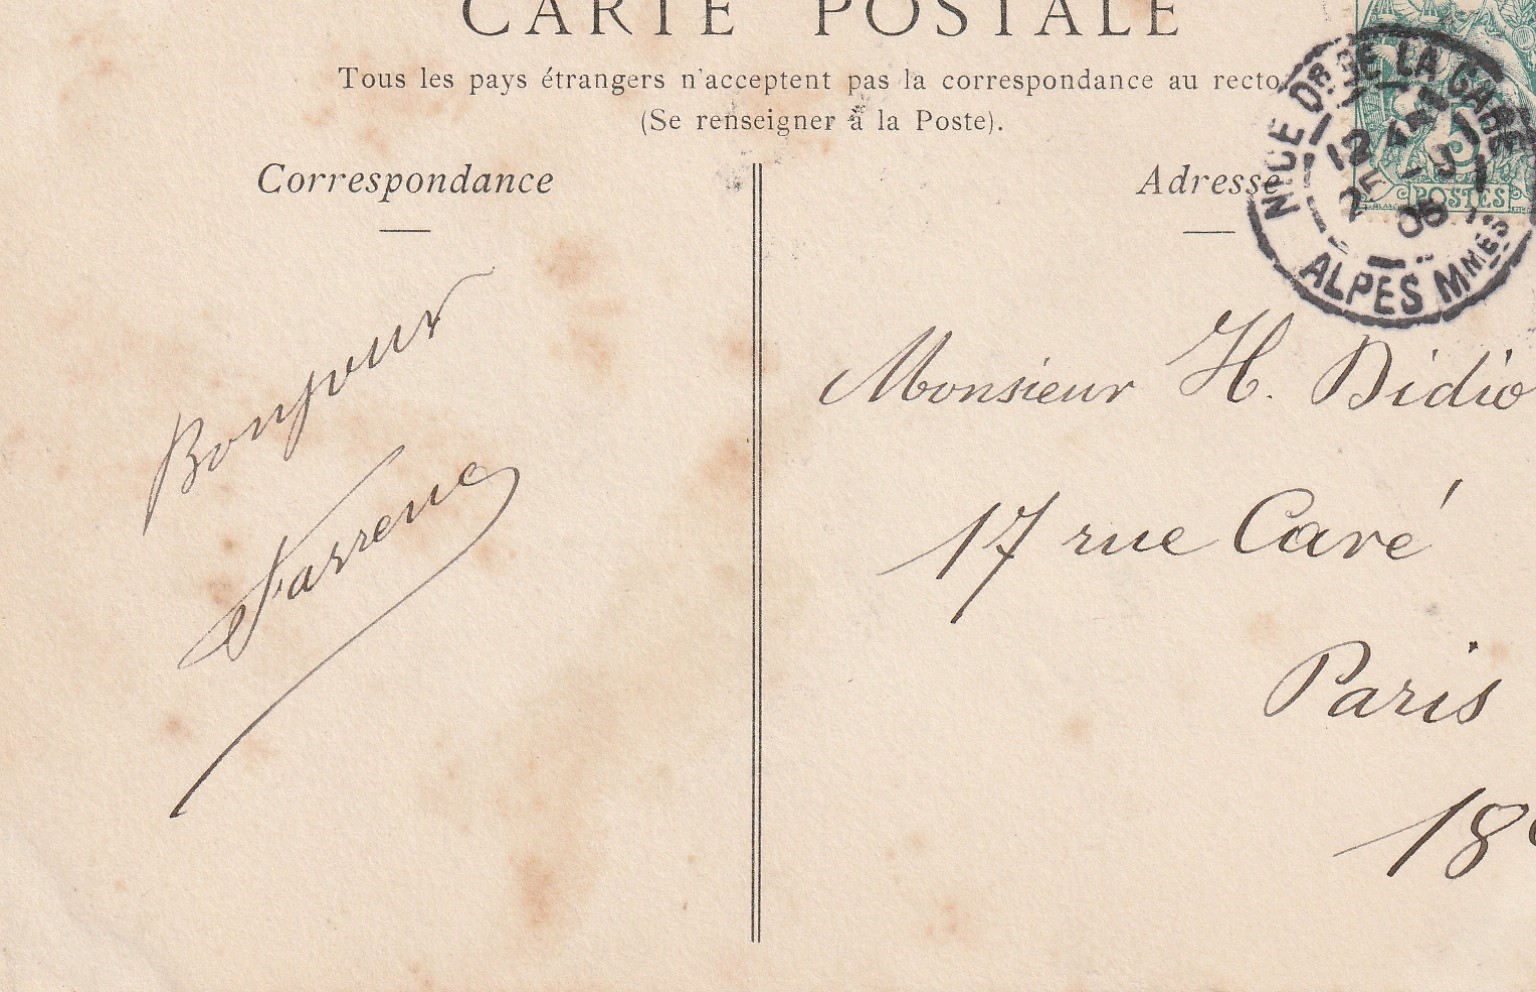 CARTE POSTALE
Tous les pays étrangers n'acceptent pas la correspondance au recto
(Se renseigner à la Poste).
Correspondance
Adresse
NICE Dr DE LA GARE
25
06
ALPES Mmes
5
POSTES
Bonjour
Farrene
Monsieur H. Didio
17 rue Cavé
Paris
18e